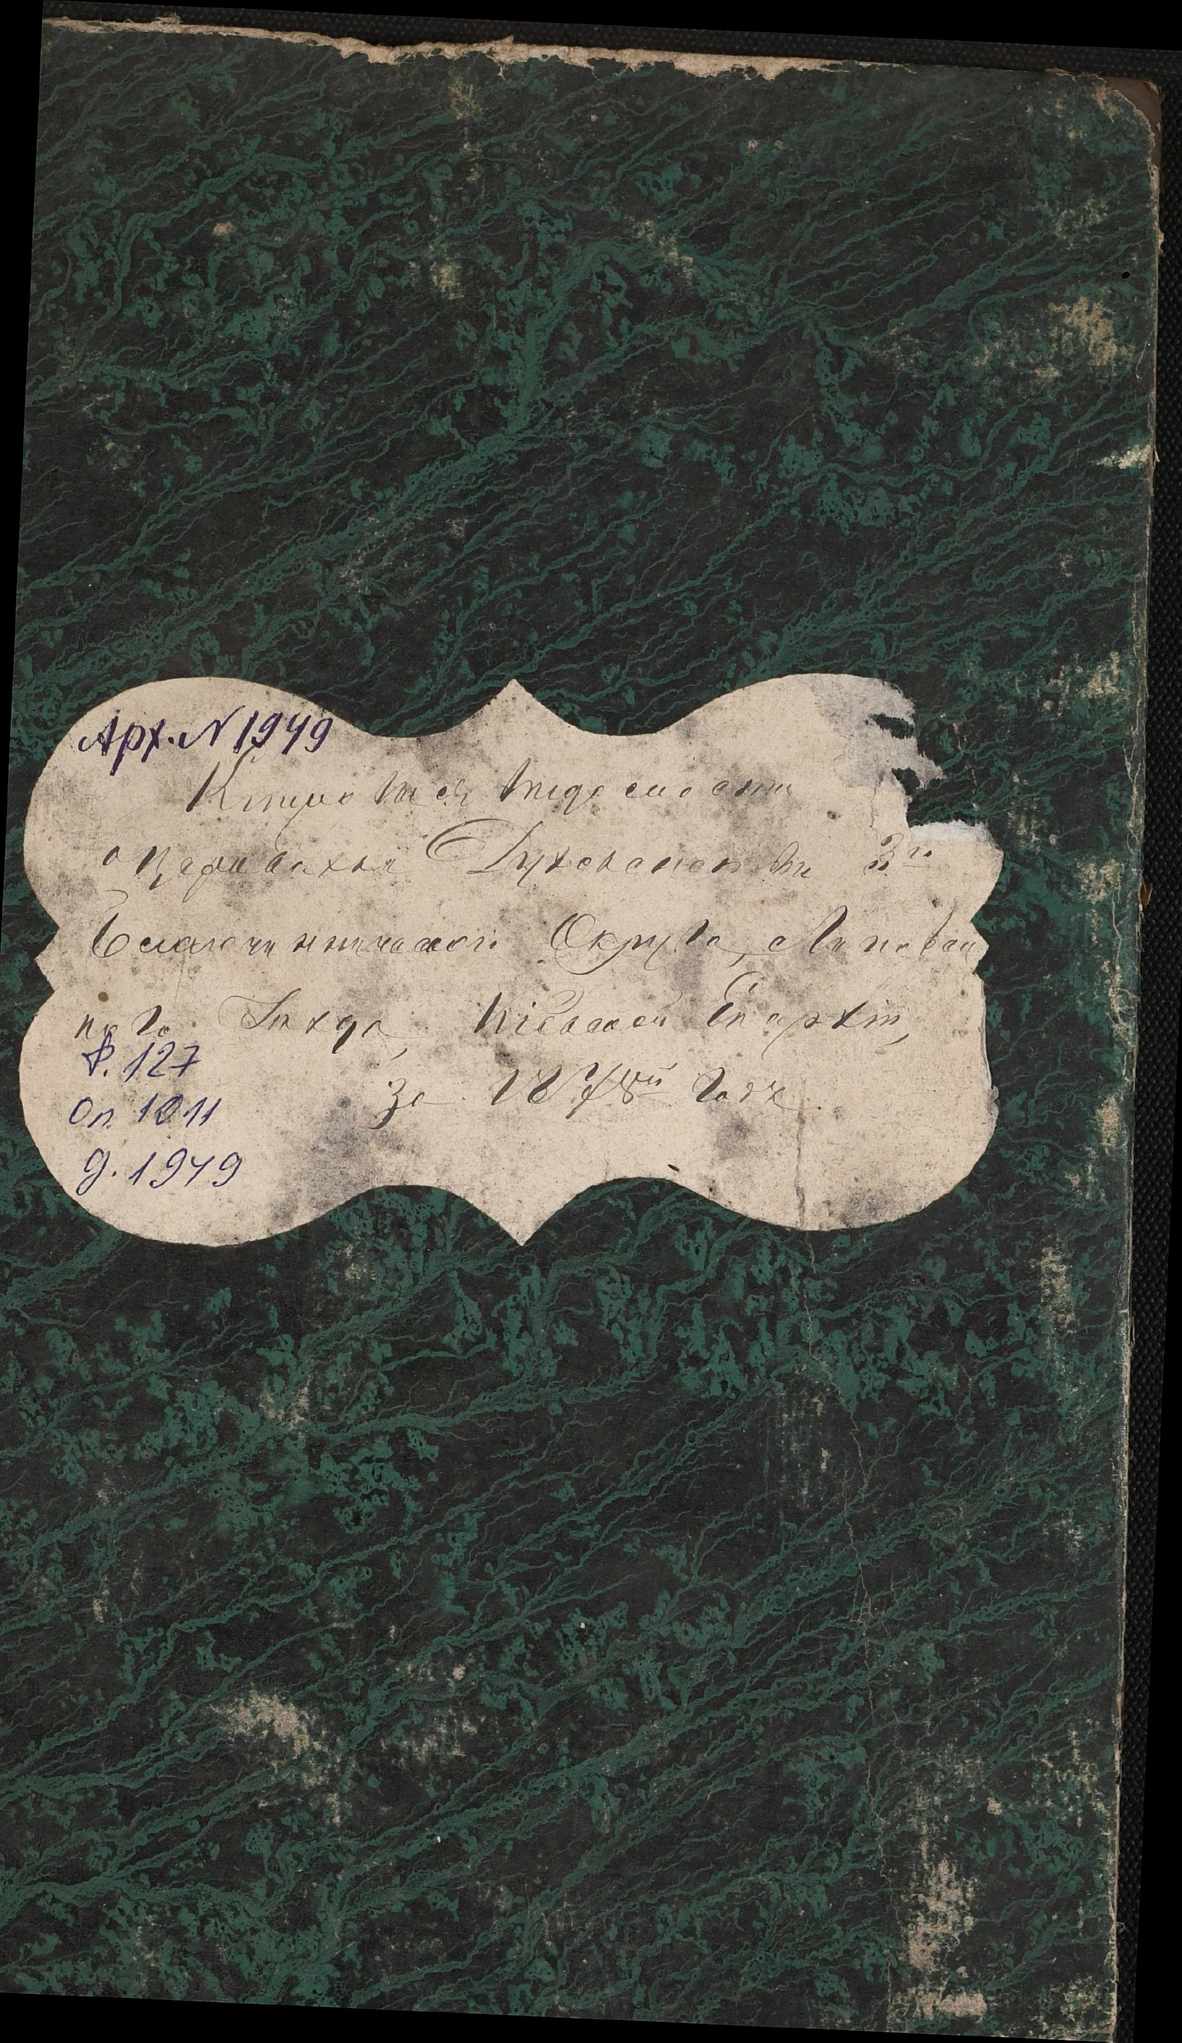 Арх. N 1949
Клировыя Вѣдомости
о церквахъ и Духовенствѣ 3го
Благочинническаго Округа, Липовец
каго Уѣзда, Кіевской Епархіи,
за 1878й Годъ.
Ф. 127
Оп. 1011
д. 1949